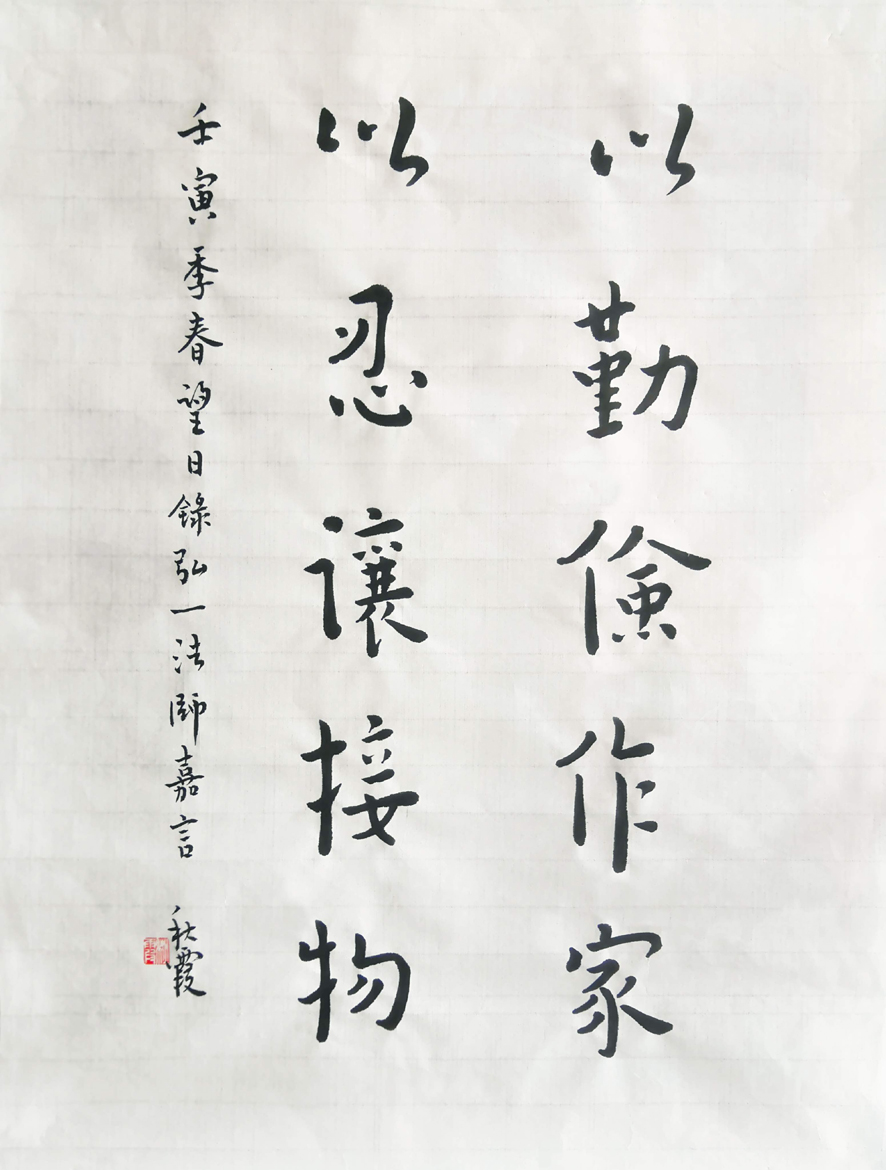 以勤儉作家
以忍讓接物
壬寅季春望日錄弘一法師嘉言 秋霞